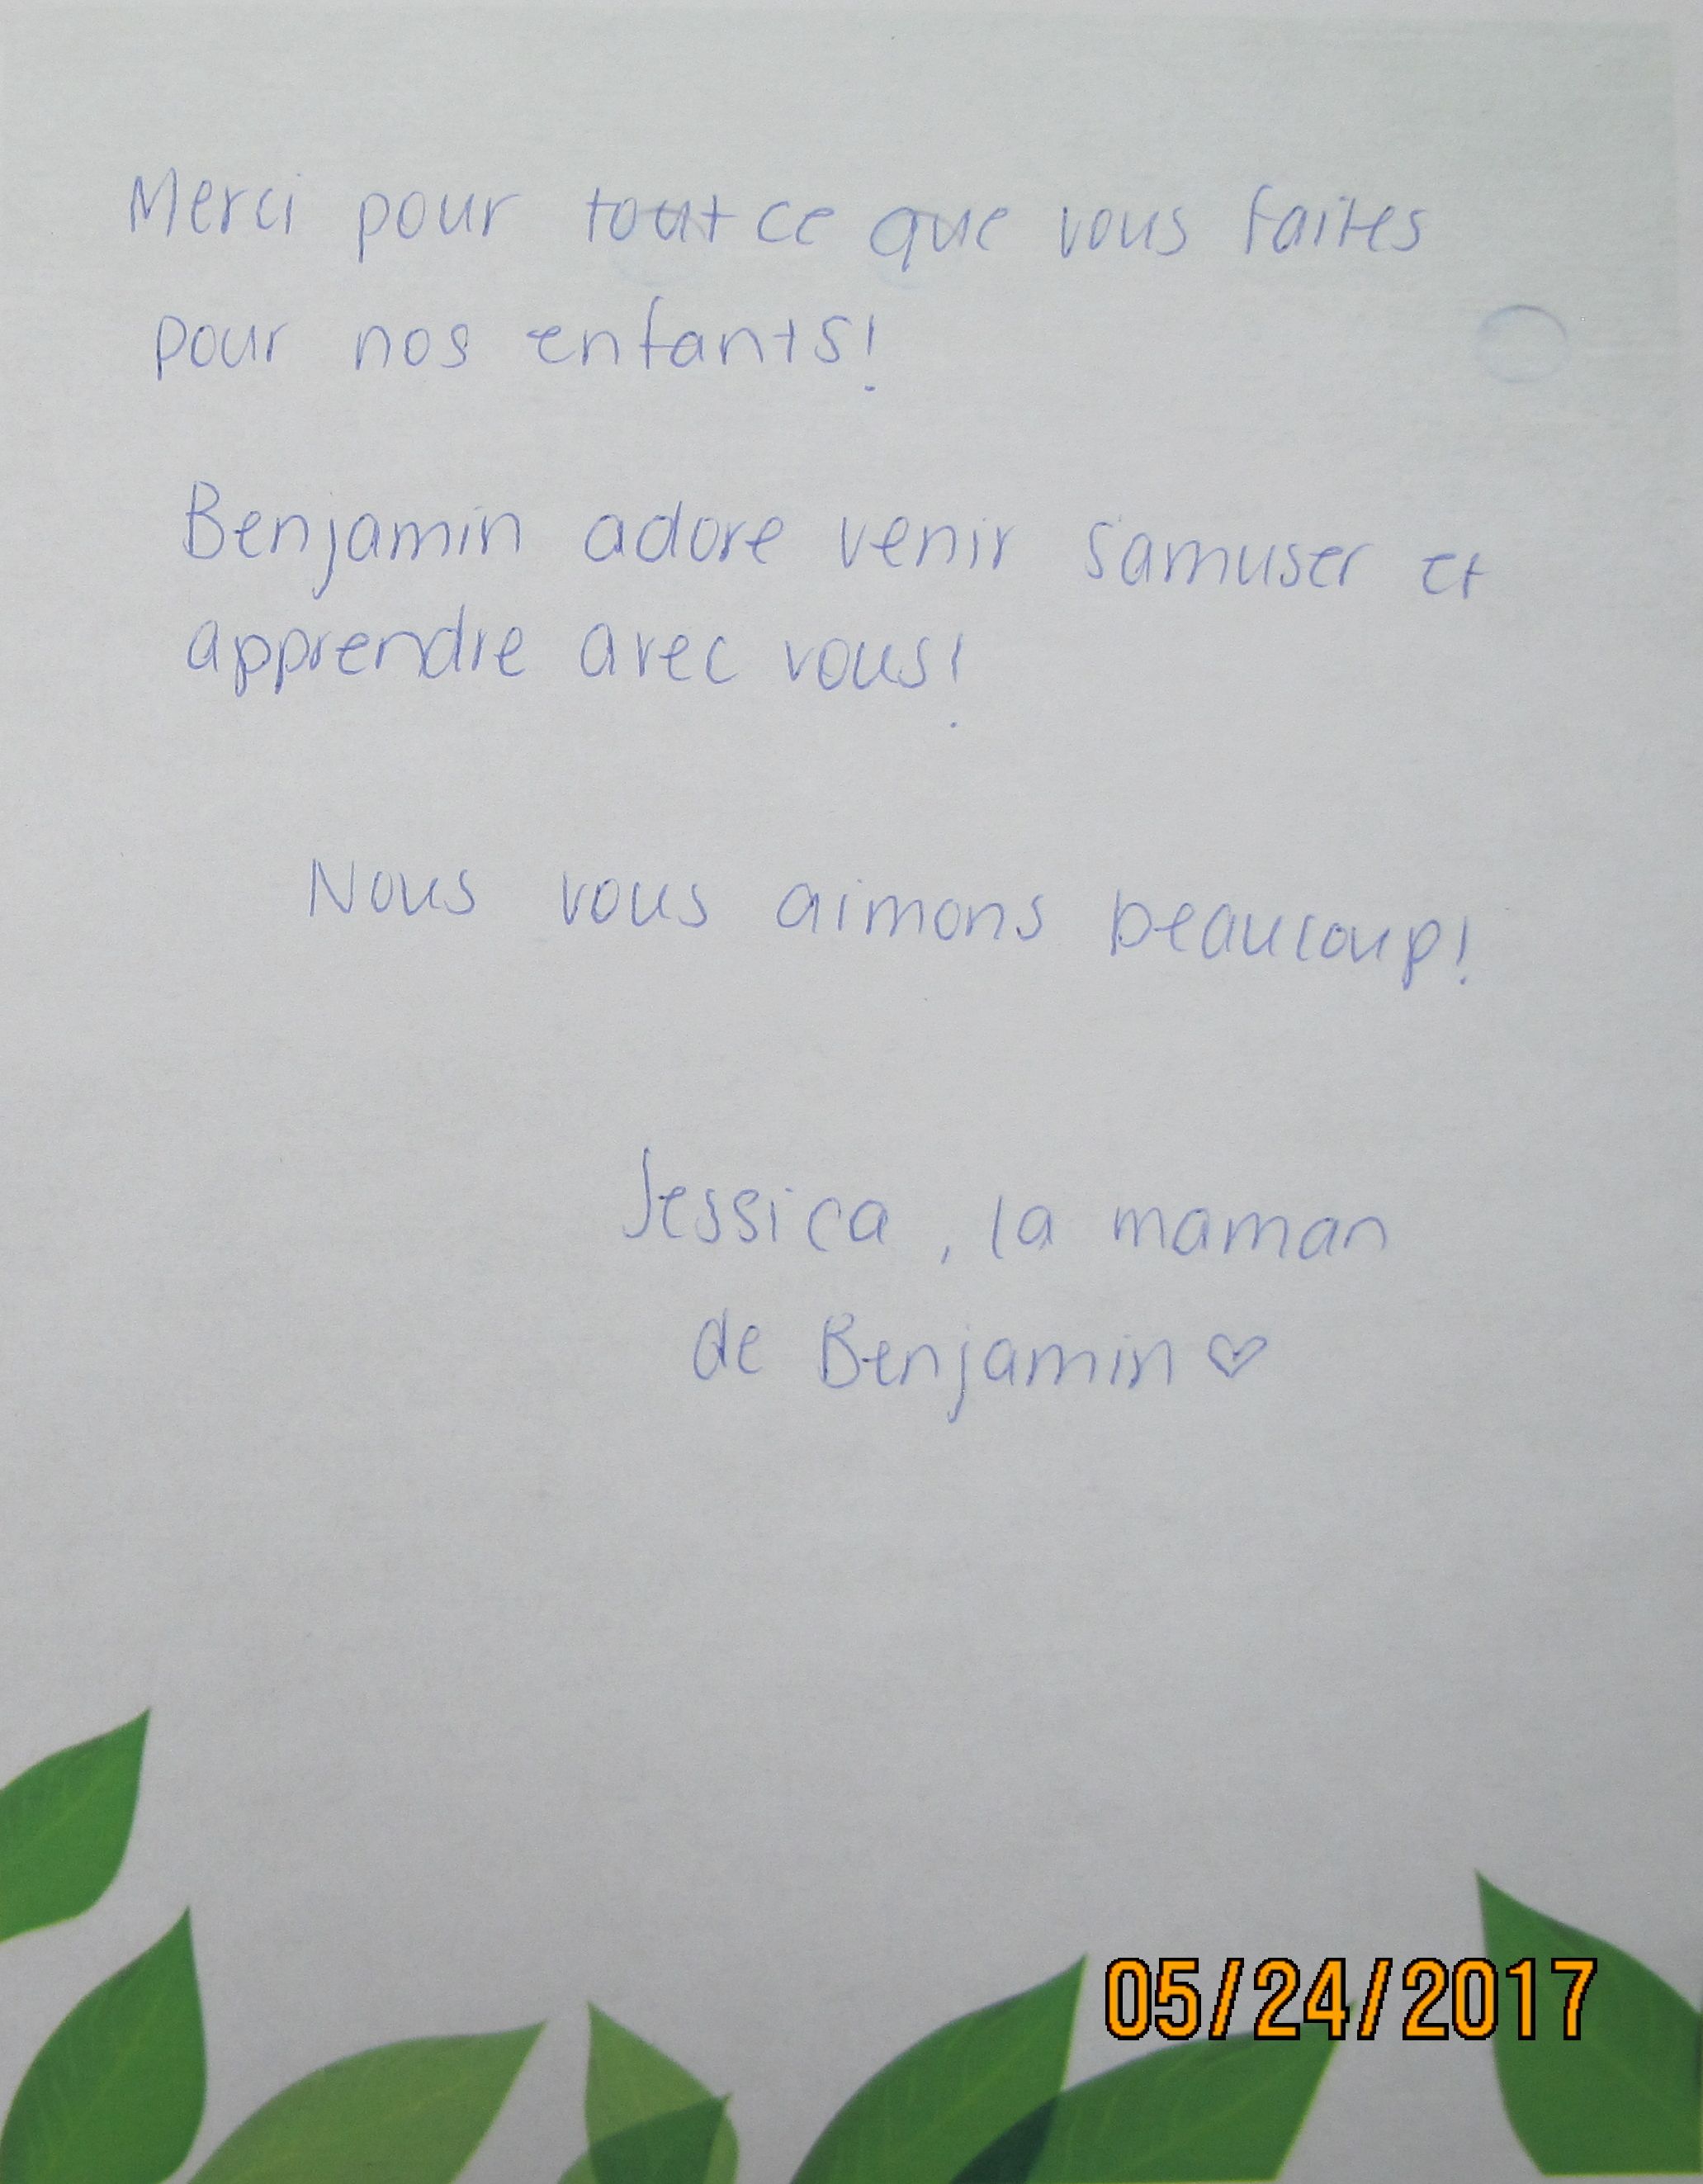 Merci pour tout ce que vous faites
pour nos enfants!
Benjamin adore venir s'amuser et
apprendre avec vous!
Nous vous aimons beaucoup!
Jessica, la maman
de Benjamin ♡
05/24/2017